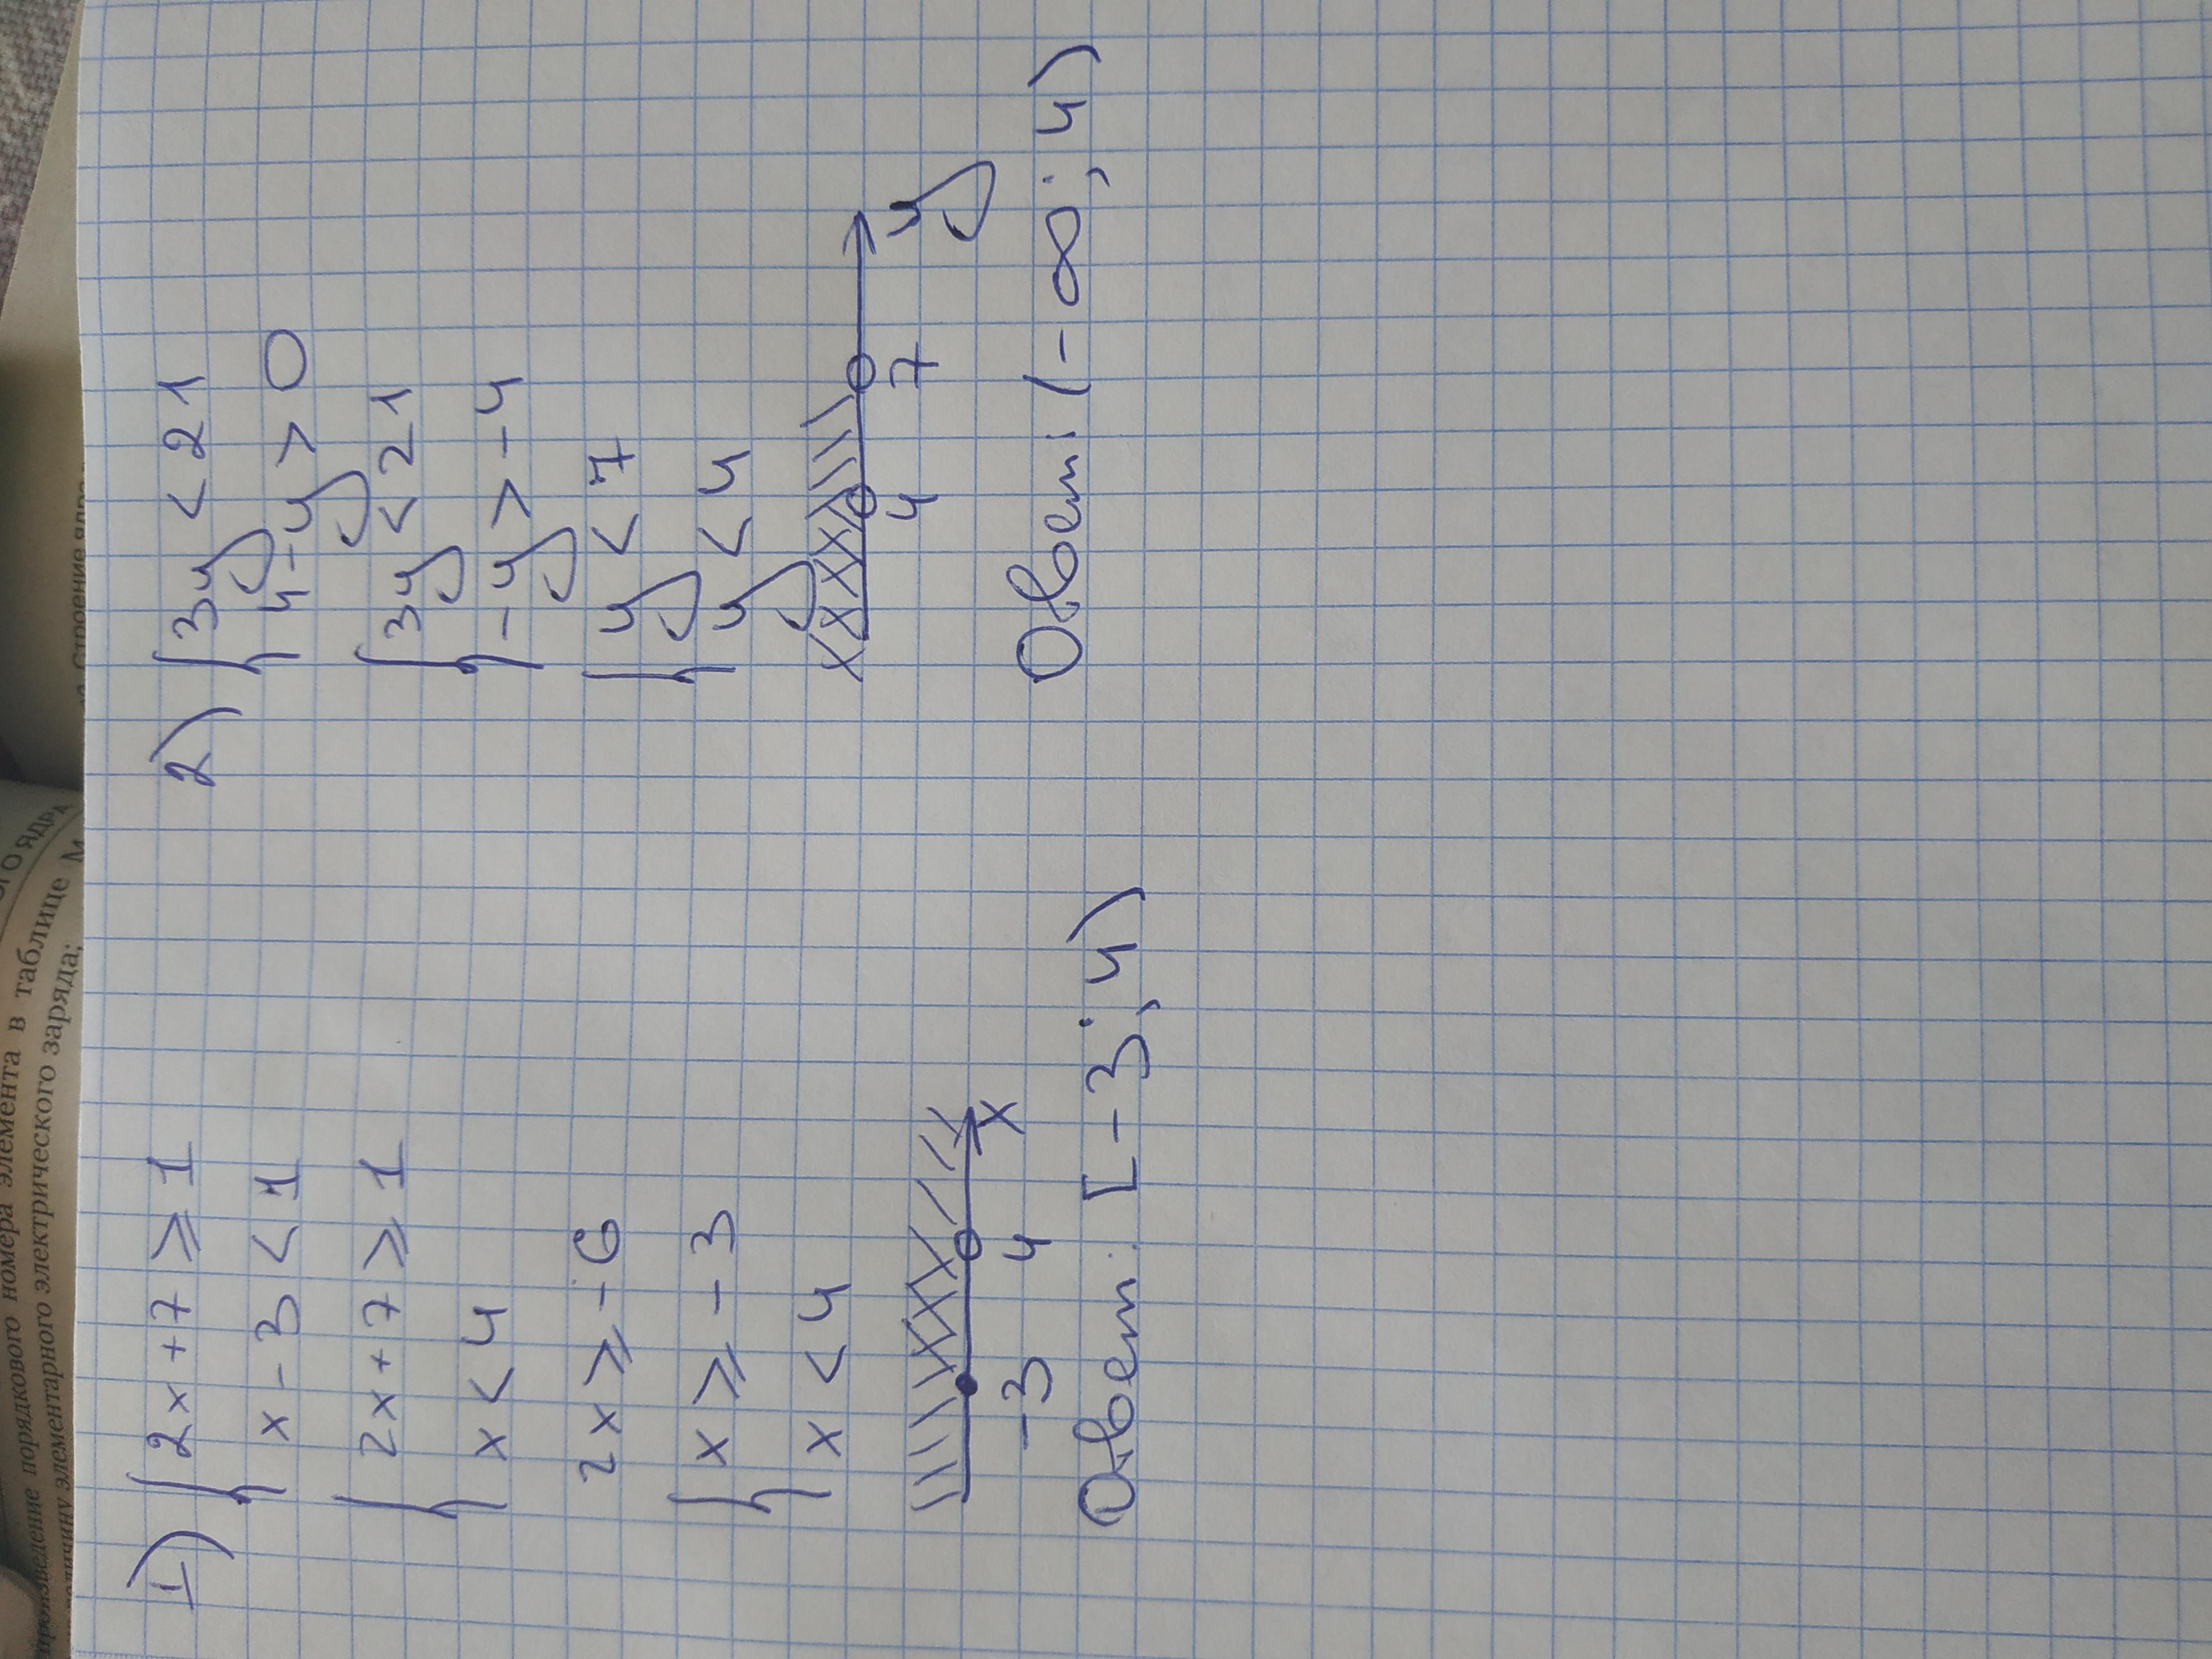 1) { 2x + 7 ⩾ 1
x - 3 < 1
{ 2x + 7 ⩾ 1
x < 4
2x ⩾ -6
{ x ⩾ -3
x < 4
-3 4 x
Ответ: [-3; 4)
2) { 3y < 21
4 - y > 0
{ 3y < 21
-y > -4
{ y < 7
y < 4
4 7 y
Ответ: (-∞; 4)
порядкового номера элемента в таблице М
элементарного электрического заряда;
Строение ядра